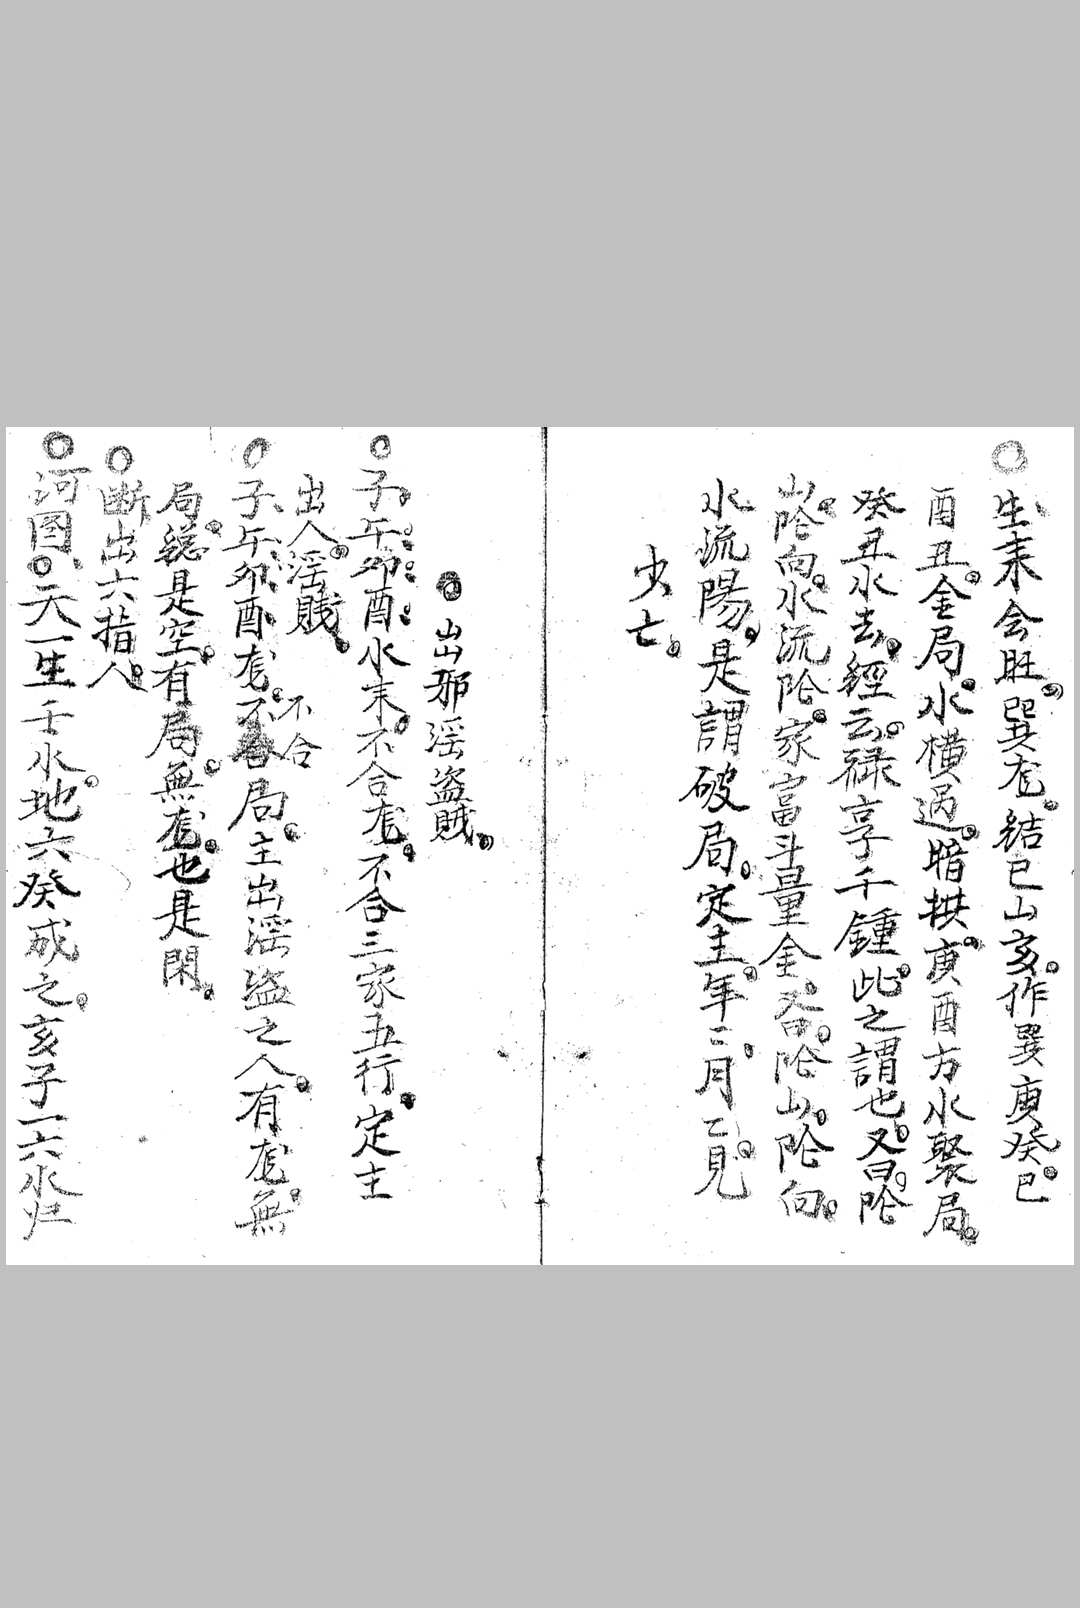 生来会旺。巽尨。結巳山亥。作巽庚癸。巳
酉丑。金局。水橫過。暗拱。庚酉方水聚局。
癸丑水去。經云。禄享千鍾。此之謂也。又曰。阾
山。阾向。水流阾。家富斗量金。又曰。阾山。阾向。
水流陽。是謂破局。定主。年三月乙見
少亡。
出邪滛盗賊。
子。午。卯。酉。水来。不合尨。不合三家五行。定主
出人。滛賤。
子、午、卯、酉、尨。不合局。主出滛盜之人。有尨。無
局。縂是空。有局。無尨。也是閑。
断出六指人。
河图。天一生壬水。地六癸成之。亥子一六水归